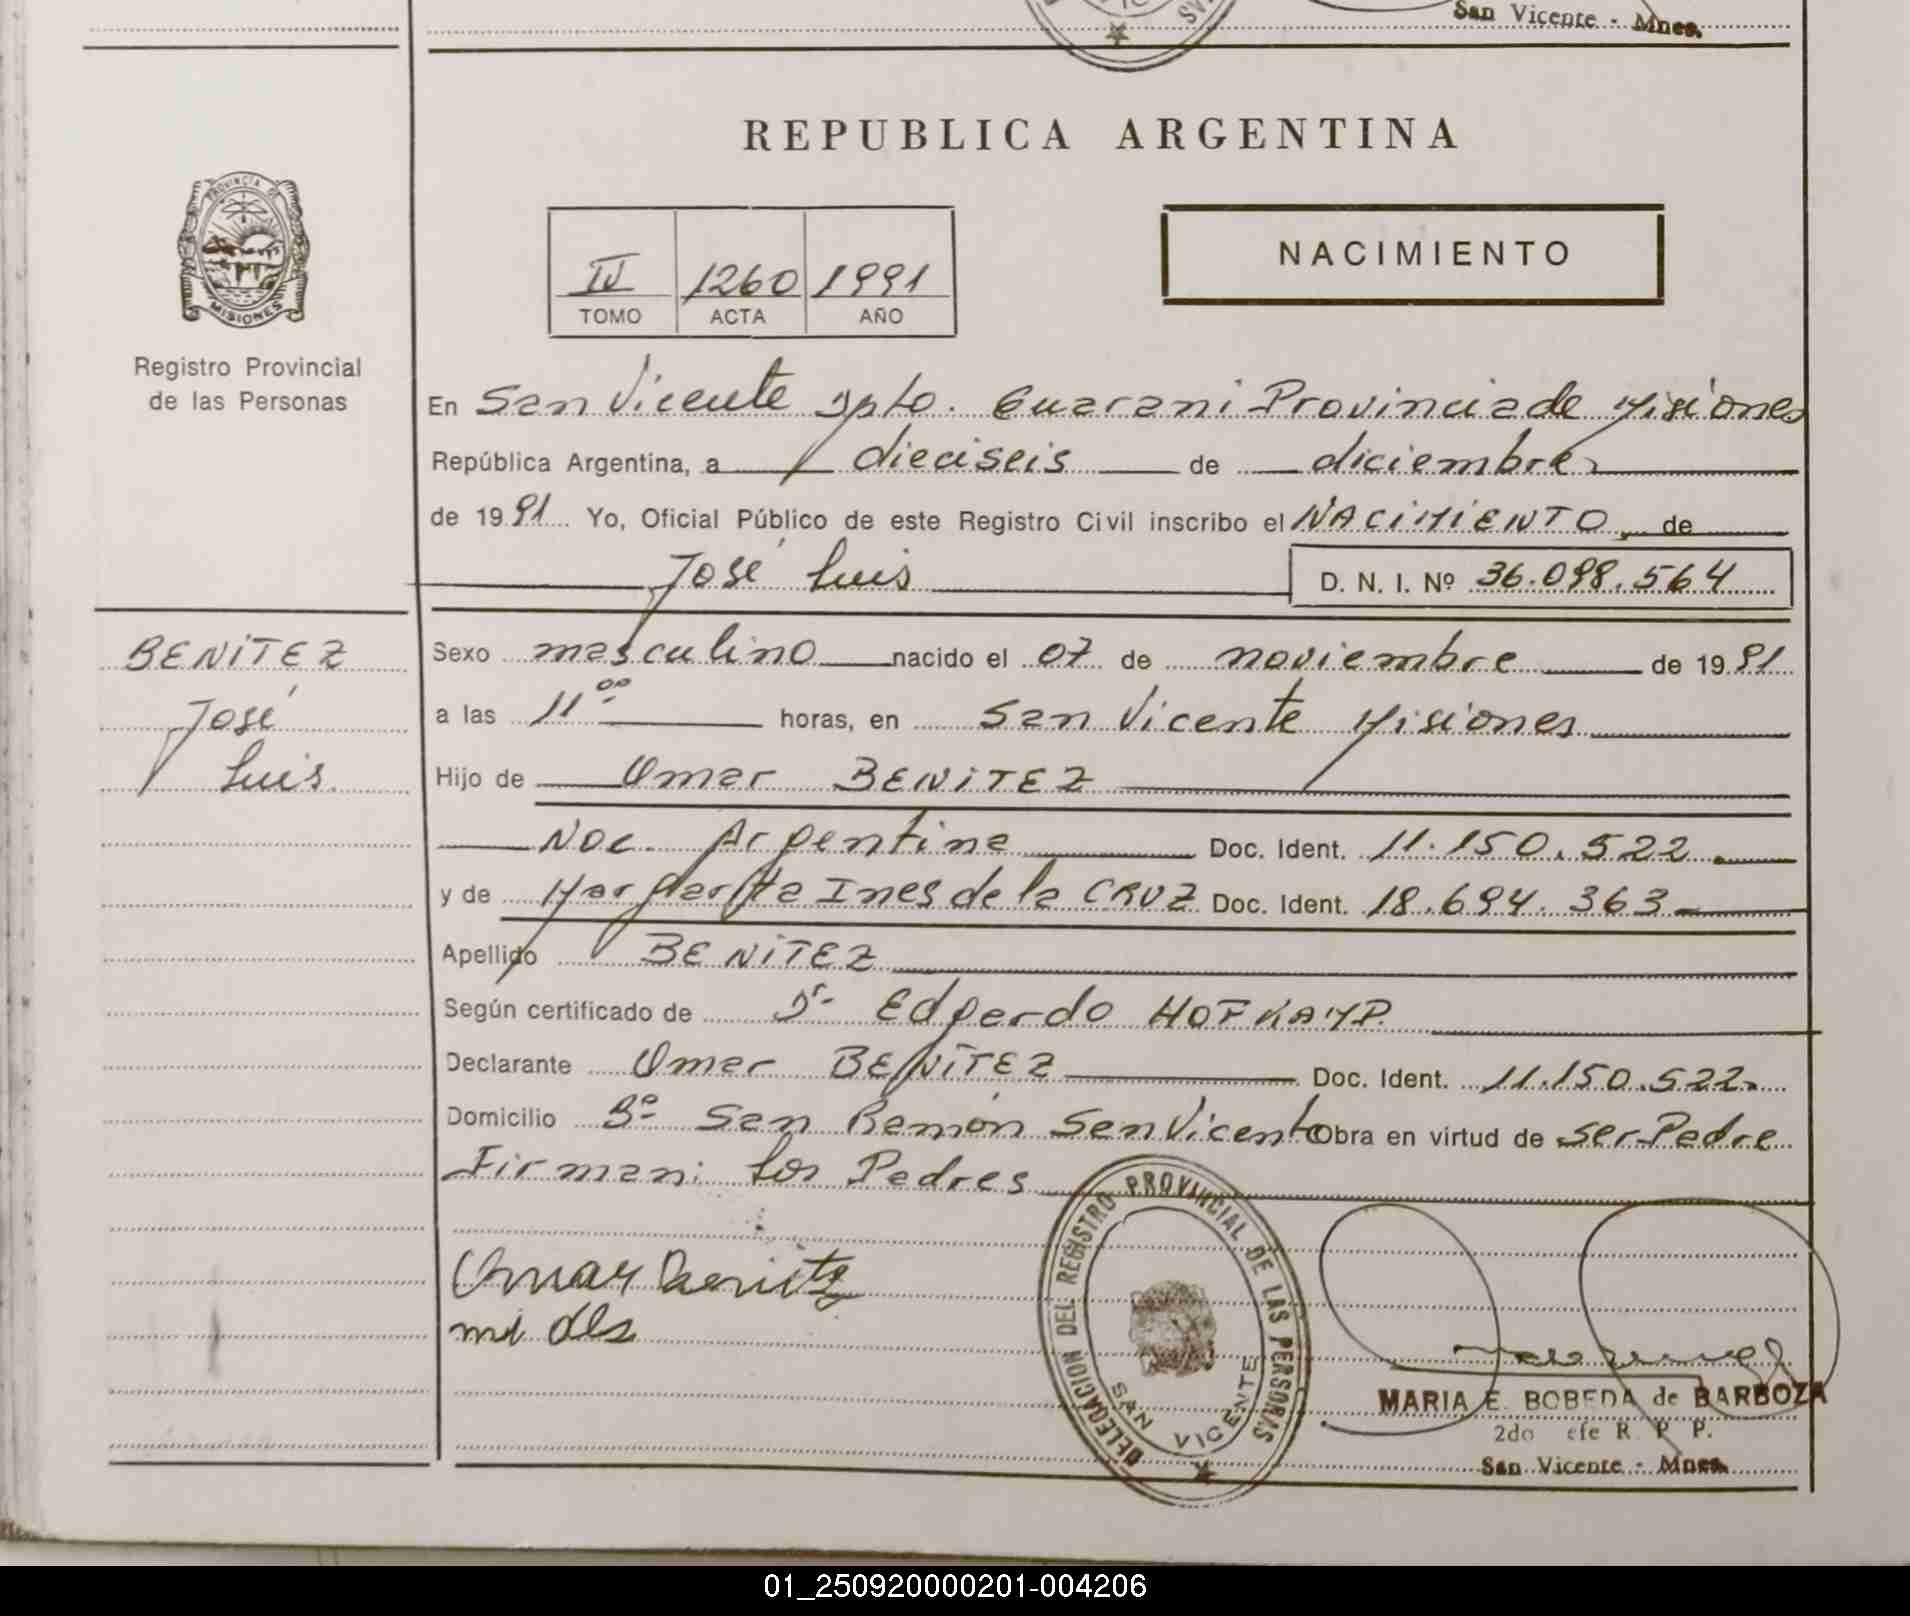 San Vicente - Mnes.
REPUBLICA ARGENTINA
PROVINCIA DE
MISIONES
Registro Provincial
de las Personas
IV 1260 1991
TOMO ACTA AÑO
NACIMIENTO
En San Vicente Dpto. Guarani Provincia de Misiones
República Argentina, a dieciseis de diciembre
de 1991 Yo, Oficial Público de este Registro Civil inscribo el NACIMIENTO de
José Luis D. N. I. Nº 36.098.564
BENiTEZ
José
Luis.
Sexo masculino nacido el 07 de noviembre de 1991
a las 11 00 horas, en San Vicente Misiones
Hijo de Omar BENiTEZ
Nac. Argentina Doc. Ident. 11.150.522
y de Margarita Ines de la CRUZ Doc. Ident. 18.694.363
Apellido BENiTEZ
Según certificado de Dr. Edgardo HOFKAMP.
Declarante Omar BENiTEZ Doc. Ident. 11.150.522
Domicilio Bº San Ramón San Vicente Obra en virtud de ser Padre
Firman: Los Padres
Omar Benitez
DELEGACION DEL REGISTRO PROVINCIAL DE LAS PERSONAS
SAN VICENTE
MARIA E. BOBEDA de BARBOZA
2do efe R. P. P.
San Vicente - Mnes.
01_250920000201-004206